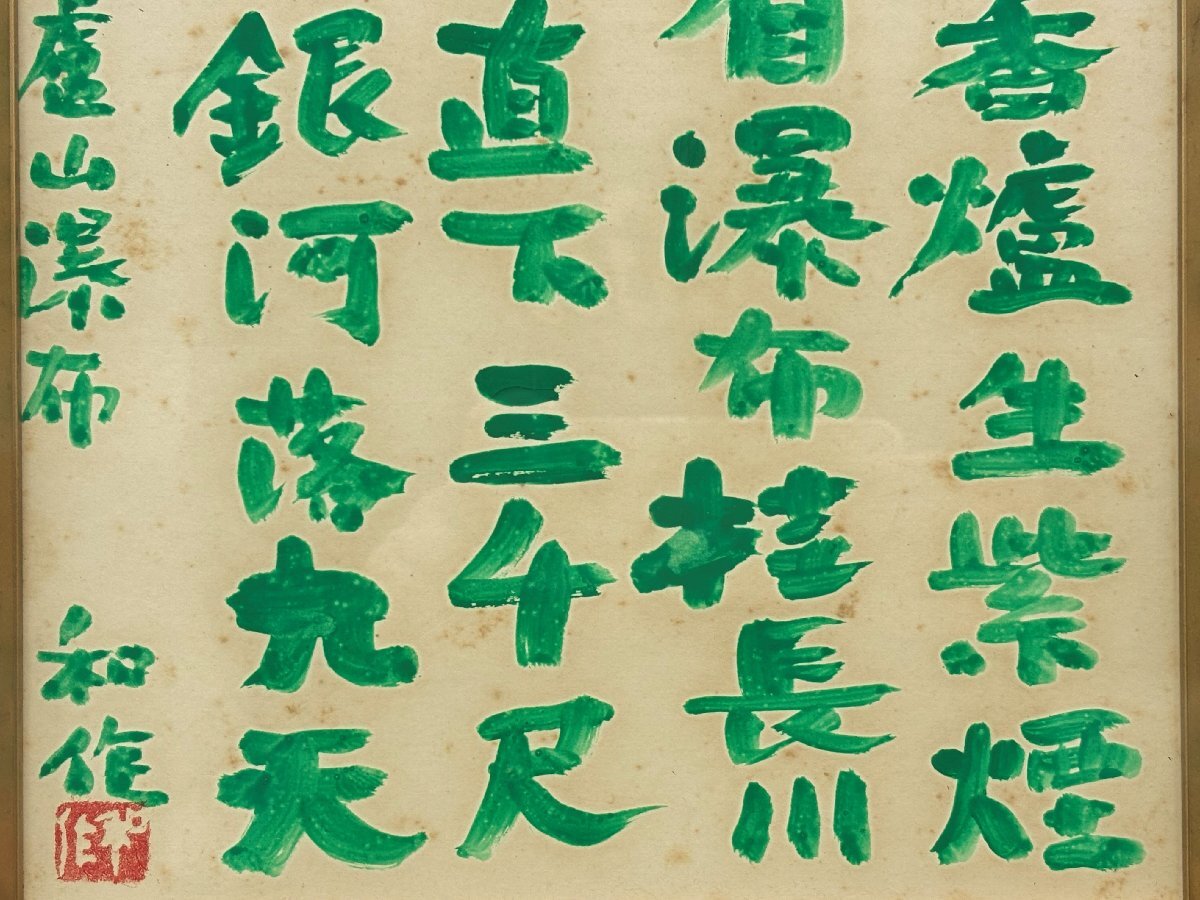 香爐生紫煙
看瀑布挂長川
直下三千尺
銀河落九天
廬山瀑布
和作